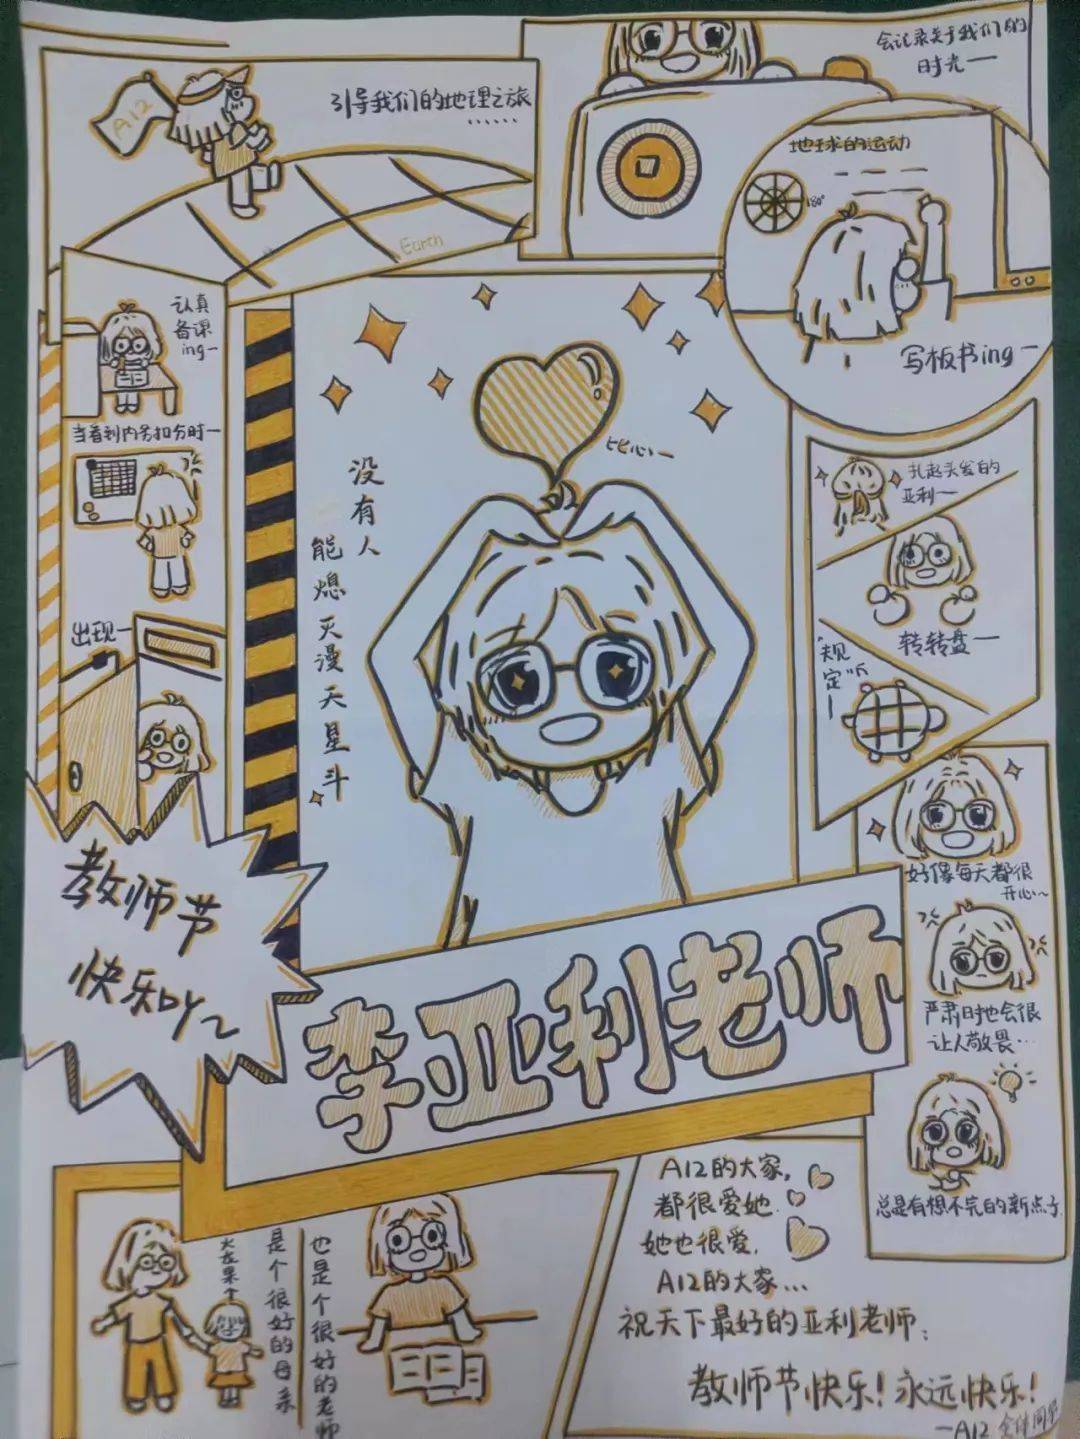 A12
引导我们的地理之旅
……
Earth
会记录关于我们的
时光一
地球的运动
180°
写板书ing一
认真
备课
ing~
当看到内务扣分时一
出现一
没有人
能熄灭漫天星斗
比心~
扎起头发的
亚利一
转转盘一
"规定"听一
好像每天都很
开心~
严肃时也会很
让人敬畏…
总是有想不完的新点子
教师节
快乐DY~
李亚利老师
火龙果↑
是个很好的母亲
也是个很好的老师
A12的大家，
都很爱她.
她也很爱，
A12的大家…
祝天下最好的亚利老师：
教师节快乐！永远快乐！
一A12 全体同学